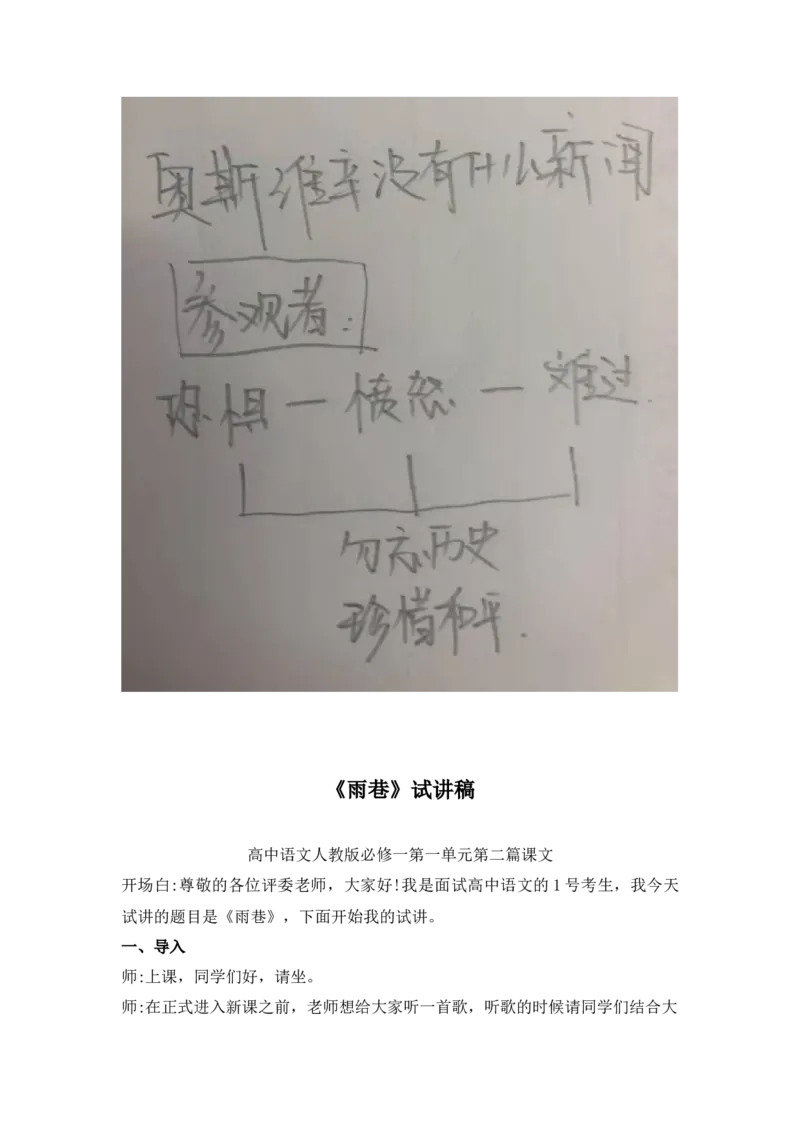 奥斯维辛没有什么新闻
参观者:
恐惧—愤怒—难过.
勿忘历史
珍惜和平.
《雨巷》试讲稿
高中语文人教版必修一第一单元第二篇课文
开场白:尊敬的各位评委老师，大家好!我是面试高中语文的1号考生，我今天
试讲的题目是《雨巷》，下面开始我的试讲。
一、导入
师:上课，同学们好，请坐。
师:在正式进入新课之前，老师想给大家听一首歌，听歌的时候请同学们结合大